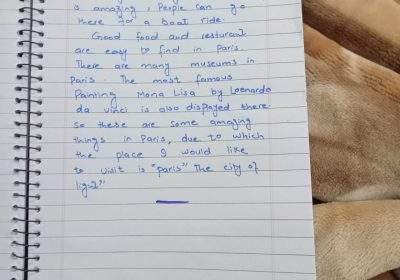 is amazing, People can go
there for a boat ride.
Good food and resturant
are easy to find in Paris.
There are many museums in
Paris. The most famous
Painting Mona Lisa by Leonardo
da vinci is also dispayed there.
So these are some amazing
things in Paris, due to which
the place I would like
to visit is "paris" The city of
light"